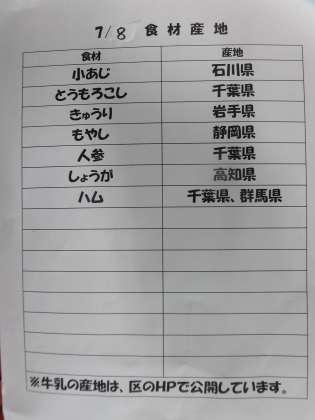 7/8 食材産地
食材 産地
小あじ 石川県
とうもろこし 千葉県
きゅうり 岩手県
もやし 静岡県
人参 千葉県
しょうが 高知県
ハム 千葉県、群馬県
※牛乳の産地は、区のHPで公開しています。